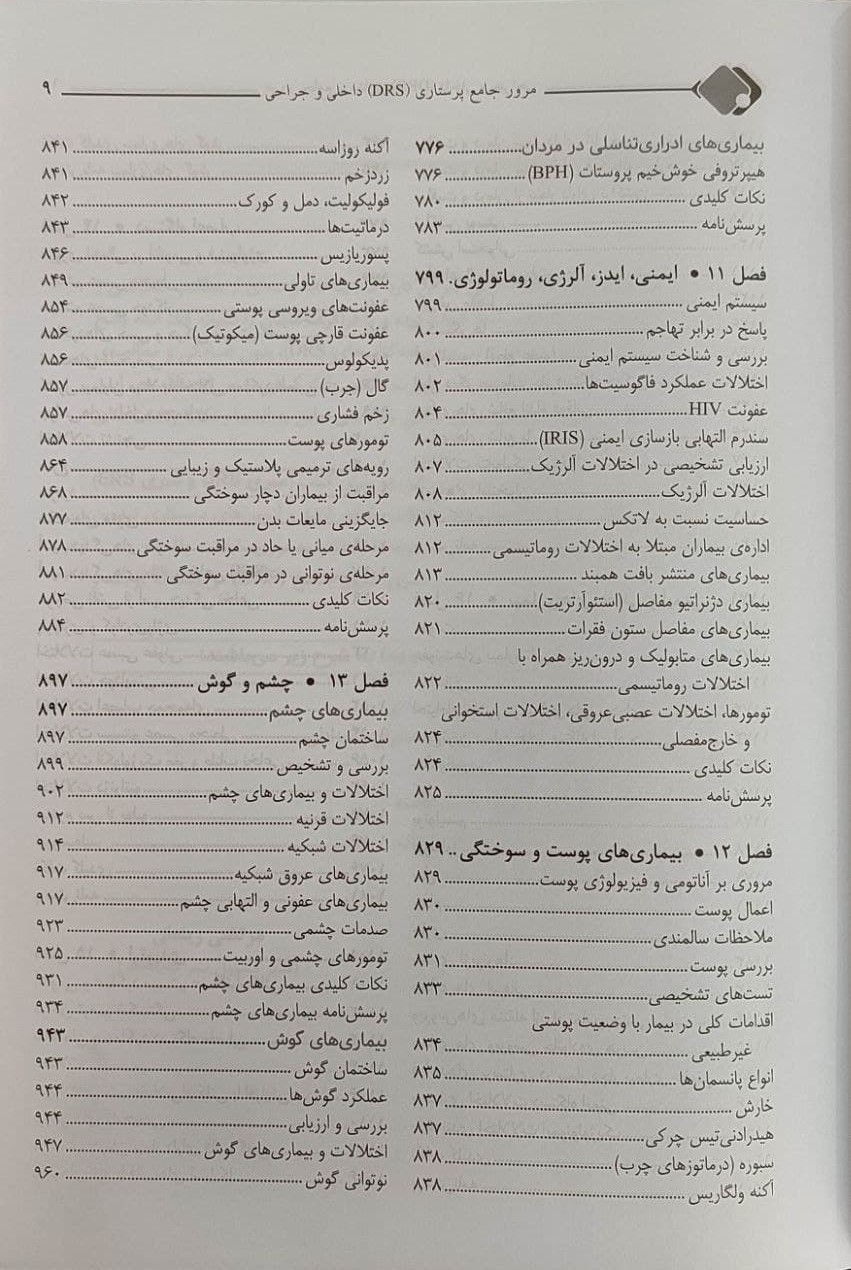 مرور جامع پرستاری (DRS) داخلی و جراحی ۹
بیماری‌های ادراری‌تناسلی در مردان ۷۷۶
هیپرتروفی خوش‌خیم پروستات (BPH) ۷۷۶
نکات کلیدی ۷۸۰
پرسش‌نامه ۷۸۳
فصل ۱۱ • ایمنی، ایدز، آلرژی، روماتولوژی. ۷۹۹
سیستم ایمنی ۷۹۹
پاسخ در برابر تهاجم ۸۰۰
بررسی و شناخت سیستم ایمنی ۸۰۱
اختلالات عملکرد فاگوسیت‌ها ۸۰۲
عفونت HIV ۸۰۴
سندرم التهابی بازسازی ایمنی (IRIS) ۸۰۵
ارزیابی تشخیصی در اختلالات آلرژیک ۸۰۷
اختلالات آلرژیک ۸۰۸
حساسیت نسبت به لاتکس ۸۱۲
اداره‌ی بیماران مبتلا به اختلالات روماتیسمی ۸۱۲
بیماری‌های منتشر بافت همبند ۸۱۳
بیماری دژنراتیو مفاصل (استئوآرتریت) ۸۲۰
بیماری‌های مفاصل ستون فقرات ۸۲۱
بیماری‌های متابولیک و درون‌ریز همراه با
اختلالات روماتیسمی ۸۲۲
تومورها، اختلالات عصبی‌عروقی، اختلالات استخوانی
و خارج‌مفصلی ۸۲۴
نکات کلیدی ۸۲۴
پرسش‌نامه ۸۲۵
فصل ۱۲ • بیماری‌های پوست و سوختگی .. ۸۲۹
مروری بر آناتومی و فیزیولوژی پوست ۸۲۹
اعمال پوست ۸۳۰
ملاحظات سالمندی ۸۳۰
بررسی پوست ۸۳۱
تست‌های تشخیصی ۸۳۳
اقدامات کلی در بیمار با وضعیت پوستی
غیرطبیعی ۸۳۴
انواع پانسمان‌ها ۸۳۵
خارش ۸۳۷
هیدرادنی‌تیس چرکی ۸۳۷
سبوره (درماتوزهای چرب) ۸۳۸
آکنه ولگاریس ۸۳۸
آکنه روزاسه ۸۴۱
زردزخم ۸۴۱
فولیکولیت، دمل و کورک ۸۴۲
درماتیت‌ها ۸۴۳
پسوریازیس ۸۴۶
بیماری‌های تاولی ۸۴۹
عفونت‌های ویروسی پوستی ۸۵۴
عفونت قارچی پوست (میکوتیک) ۸۵۶
پدیکولوس ۸۵۶
گال (جرب) ۸۵۷
زخم فشاری ۸۵۷
تومورهای پوست ۸۵۸
رویه‌های ترمیمی پلاستیک و زیبایی ۸۶۴
مراقبت از بیماران دچار سوختگی ۸۶۸
جایگزینی مایعات بدن ۸۷۷
مرحله‌ی میانی یا حاد در مراقبت سوختگی ۸۷۸
مرحله‌ی نوتوانی در مراقبت سوختگی ۸۸۱
نکات کلیدی ۸۸۲
پرسش‌نامه ۸۸۴
فصل ۱۳ • چشم و گوش ۸۹۷
بیماری‌های چشم ۸۹۷
ساختمان چشم ۸۹۷
بررسی و تشخیص ۸۹۹
اختلالات و بیماری‌های چشم ۹۰۲
اختلالات قرنیه ۹۱۲
اختلالات شبکیه ۹۱۴
بیماری‌های عروق شبکیه ۹۱۷
بیماری‌های عفونی و التهابی چشم ۹۱۷
صدمات چشمی ۹۲۳
تومورهای چشمی و اوربیت ۹۲۵
نکات کلیدی بیماری‌های چشم ۹۳۱
پرسش‌نامه بیماری‌های چشم ۹۳۴
بیماری‌های گوش ۹۴۳
ساختمان گوش ۹۴۳
عملکرد گوش‌ها ۹۴۴
بررسی و ارزیابی ۹۴۴
اختلالات و بیماری‌های گوش ۹۴۷
نوتوانی گوش ۹۶۰